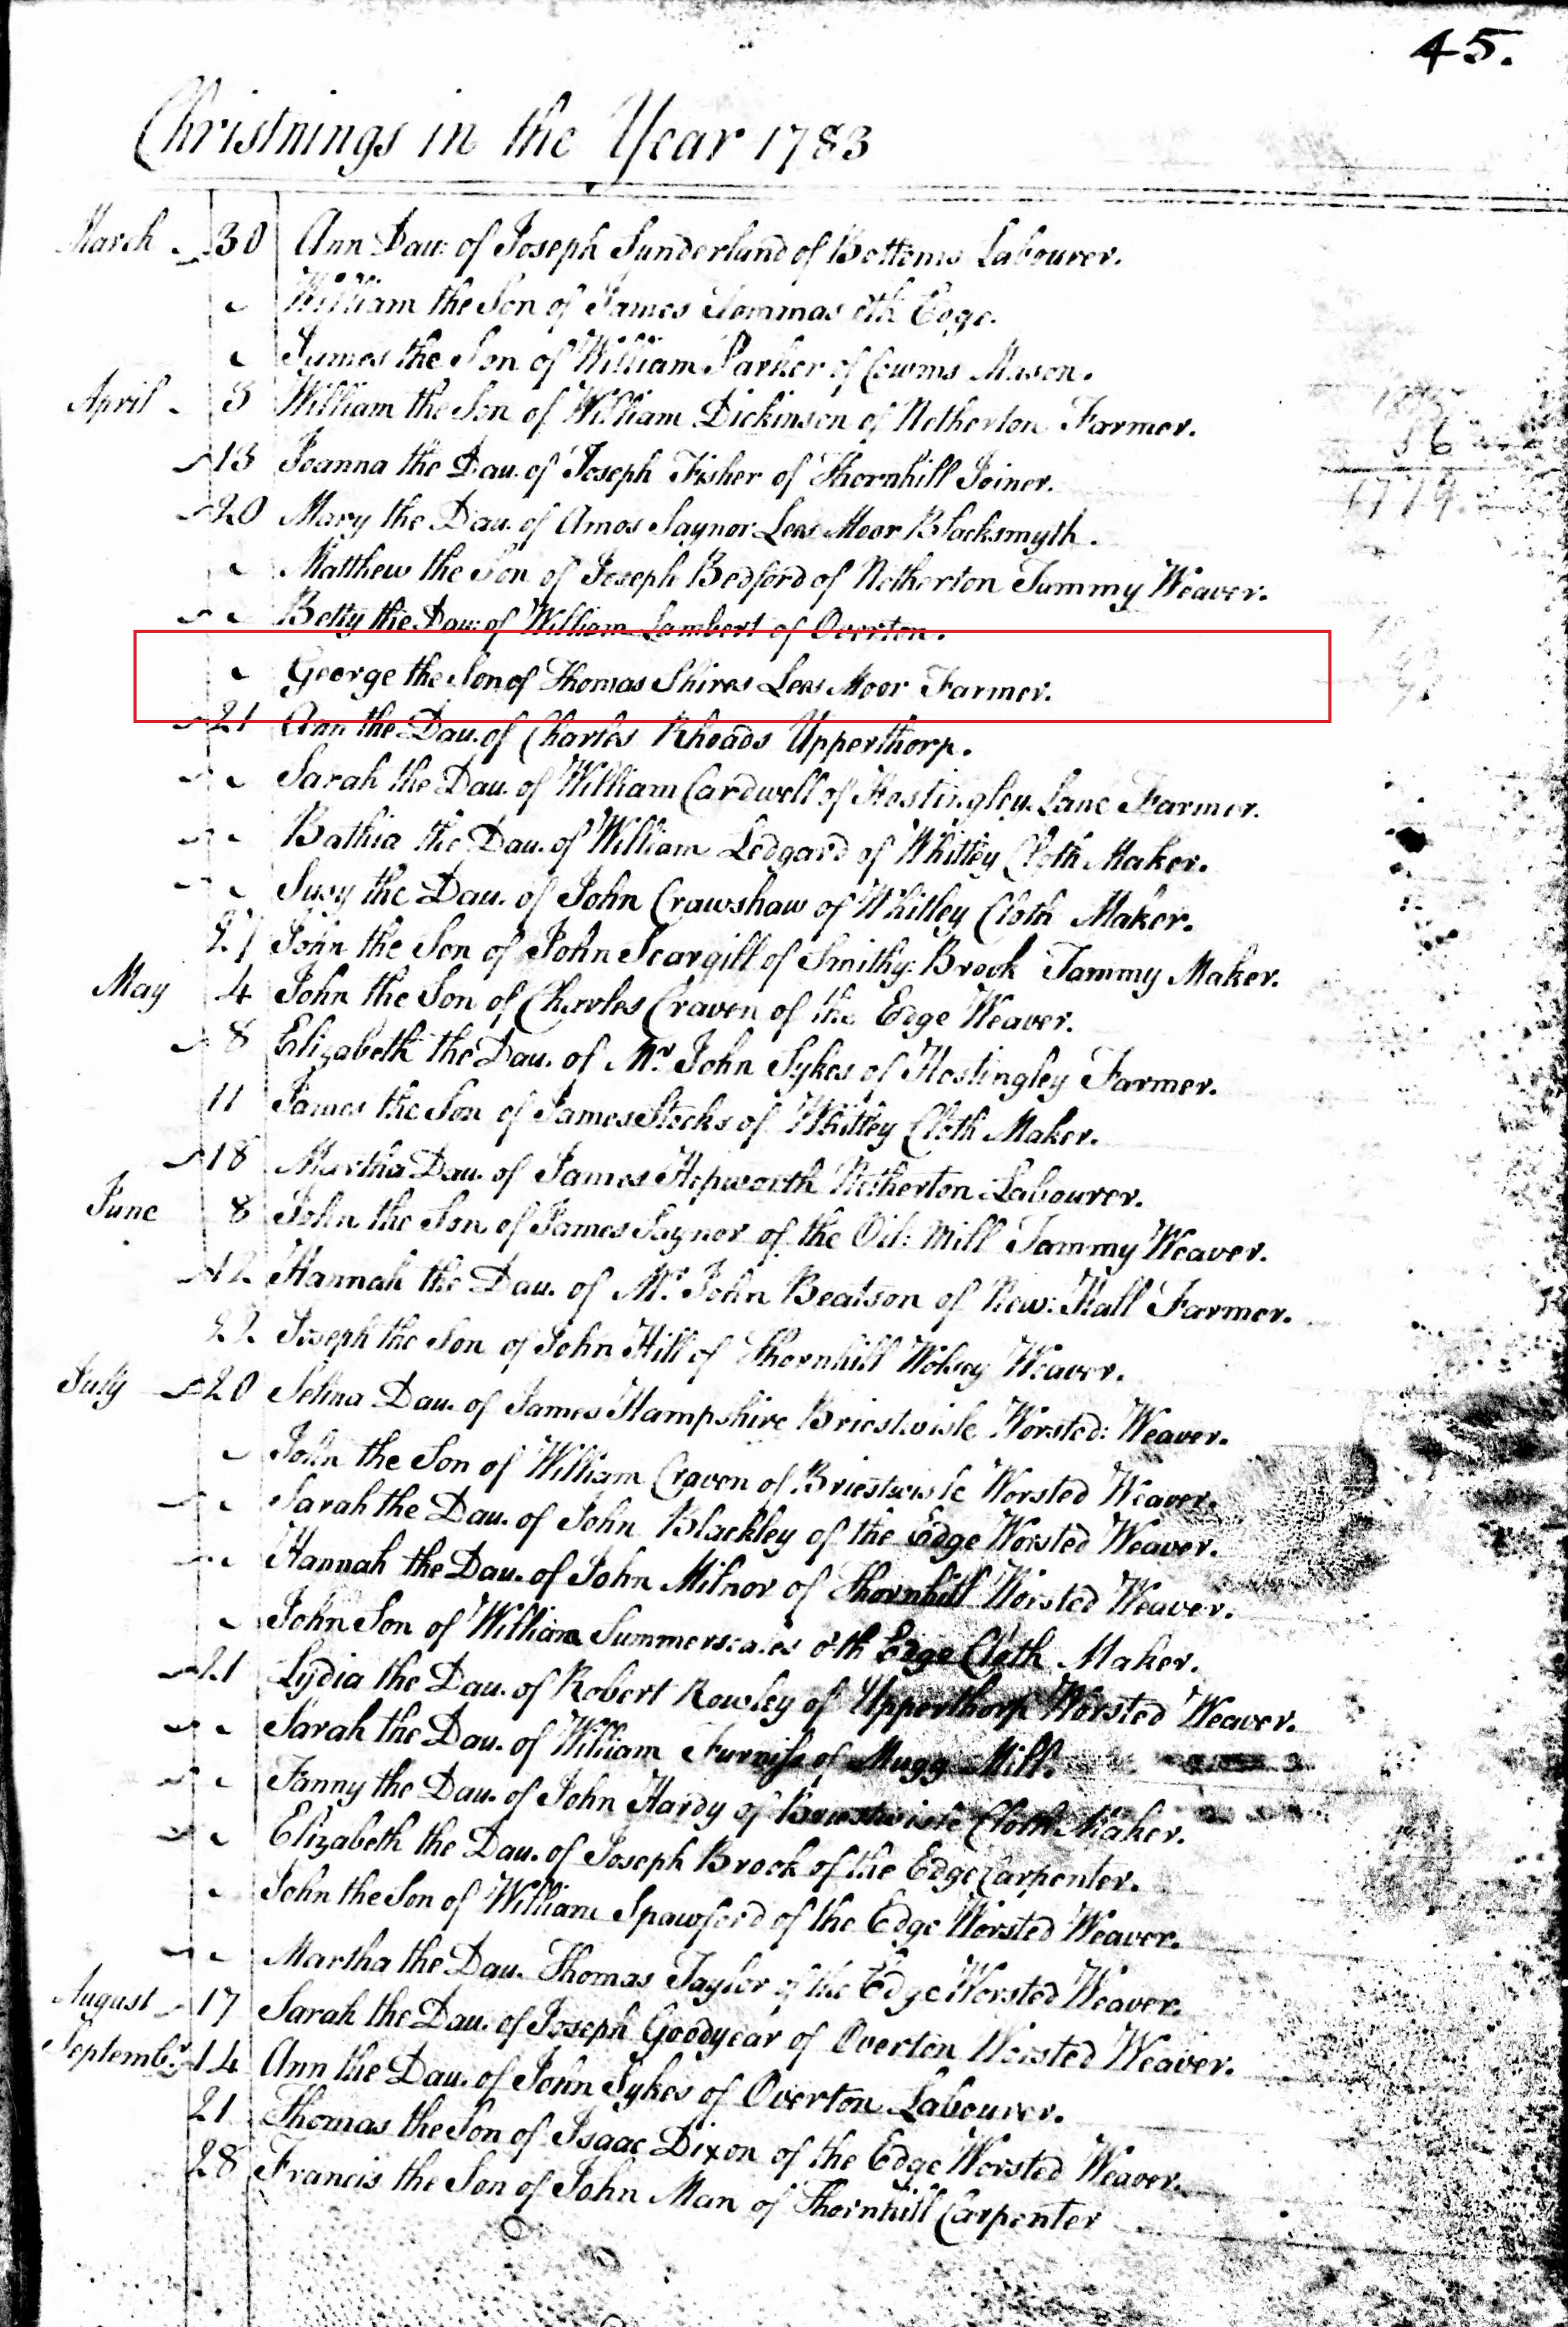 45.
Christnings in the Year 1783
March 30 Ann Dau: of Joseph Sunderland of Bottoms Labourer.
William the Son of James oth Edge.
James the Son of William Parker of Cowms Mason.
April William the Son of William Dickinson of Netherton Farmer.
13 Joanna the Dau. of Joseph Fisher of Thornhill Joiner.
20 Mary the Dau. of Amos Saynor Lees Moor Blacksmyth.
Matthew the Son of Joseph Bedford of Netherton Tammy Weaver.
Betty the Dau: of William Lambert of Overton.
George the Son of Thomas Shires Lees Moor Farmer.
21 Ann the Dau. of Charles Rhoads Upperthorp.
Sarah the Dau. of William Cardwell of Hostingley Lane Farmer.
Bathia the Dau. of William Ledgard of Whitley Cloth Maker.
Susy the Dau. of John Crawshaw of Whitley Cloth Maker.
27 John the Son of John Scargill of Smithy: Brook Tammy Maker.
May 4 John the Son of Charles Craven of the Edge Weaver.
8 Elizabeth the Dau. of Mr. John Sykes of Hostingley Farmer.
11 James the Son of James Stocks of Whitley Cloth Maker.
18 Martha Dau. of James Hepworth Netherton Labourer.
June 8 John the Son of James Saynor of the Oil: Mill Tammy Weaver.
12 Hannah the Dau. of Mr. John Beatson of New: Hall Farmer.
22 Joseph the Son of John Hill of Thornhill Weaver.
July 20 Selina Dau. of James Hampshire Briestwisle Worsted: Weaver.
John the Son of William Craven of Briestwisle Worsted Weaver.
Sarah the Dau. of John Blackley of the Edge Worsted Weaver.
Hannah the Dau. of John Milnor of Thornhill Worsted Weaver.
John Son of William Summerscales oth Edge Cloth Maker.
21 Lydia the Dau. of Robert Rowley of Upperthorp Worsted Weaver.
Sarah the Dau. of William Furniss of Mugg Mill.
Fanny the Dau. of John Hardy of Briestwisle Cloth Maker.
Elizabeth the Dau. of Joseph Brook of the Edge Carpenter.
John the Son of William Spawford of the Edge Worsted Weaver.
Martha the Dau. Thomas Taylor of the Edge Worsted Weaver.
August 17 Sarah the Dau. of Joseph Goodyear of Overton Worsted Weaver.
Septembr. 14 Ann the Dau. of John Sykes of Overton Labourer.
21 Thomas the Son of Isaac Dixon of the Edge Worsted Weaver.
28 Francis the Son of John Man of Thornhill Carpenter